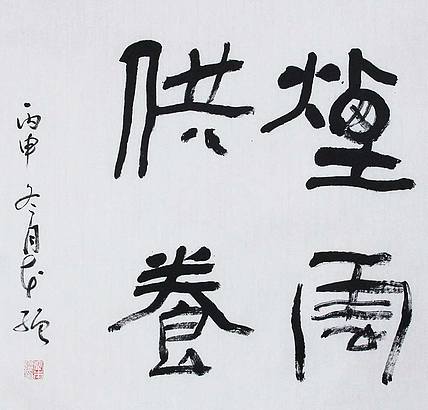 煙雲
供養
丙申冬月